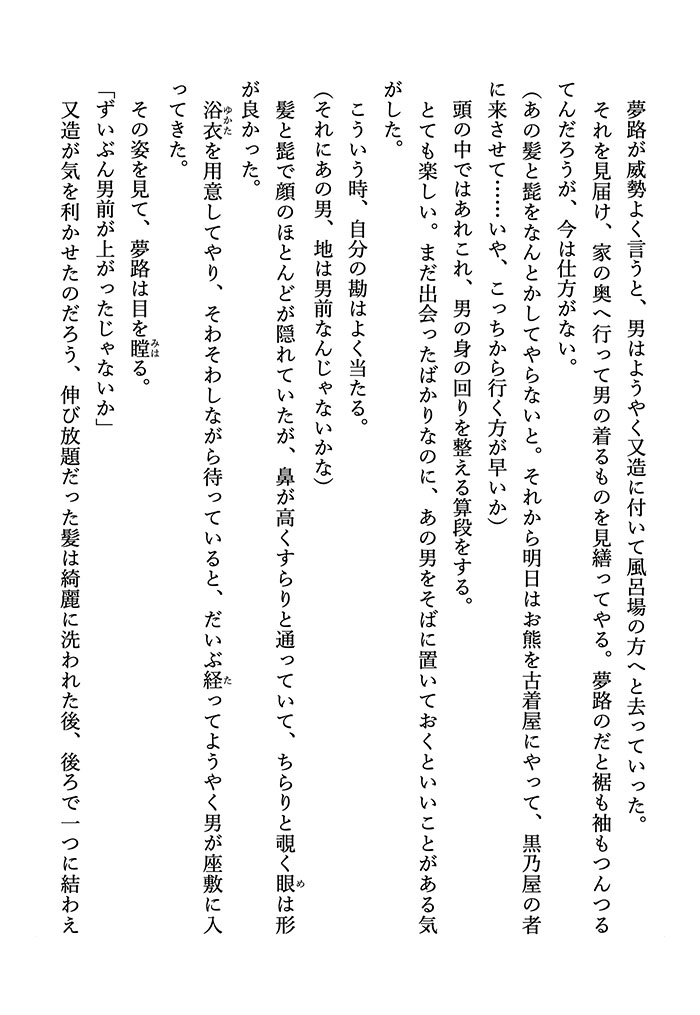 夢路が威勢よく言うと、男はようやく又造に付いて風呂場の方へと去っていった。
それを見届け、家の奥へ行って男の着るものを見繕ってやる。夢路のだと裾も袖もつんつる
てんだろうが、今は仕方がない。
(あの髪と髭をなんとかしてやらないと。それから明日はお熊を古着屋にやって、黒乃屋の者
に来させて……いや、こっちから行く方が早いか)
頭の中ではあれこれ、男の身の回りを整える算段をする。
とても楽しい。まだ出会ったばかりなのに、あの男をそばに置いておくといいことがある気
がした。
こういう時、自分の勘はよく当たる。
(それにあの男、地は男前なんじゃないかな)
髪と髭で顔のほとんどが隠れていたが、鼻が高くすらりと通っていて、ちらりと覗く眼めは形
が良かった。
浴衣ゆかたを用意してやり、そわそわしながら待っていると、だいぶ経たってようやく男が座敷に入
ってきた。
その姿を見て、夢路は目を瞠みはる。
「ずいぶん男前が上がったじゃないか」
又造が気を利かせたのだろう、伸び放題だった髪は綺麗に洗われた後、後ろで一つに結わえ